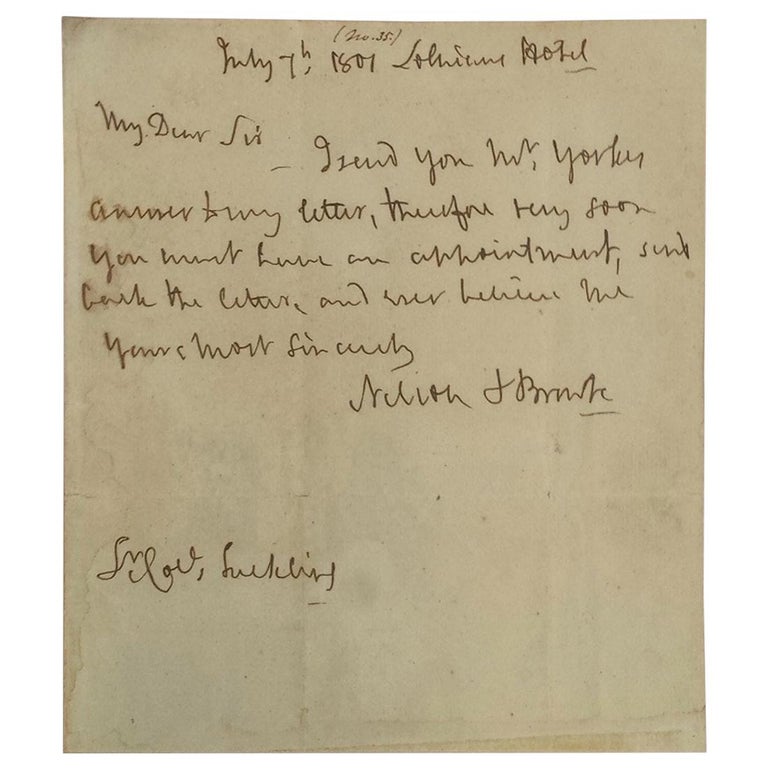 (No. 35.)
July 7th, 1801 Lothians Hotel
My Dear Sir
– I send you Mr. Yorkes
answer to my letter, therefore very soon
you must have an appointment, send
back the letter, and ever believe me
Yours most Sincerely
Nelson & Bronte
Suckling